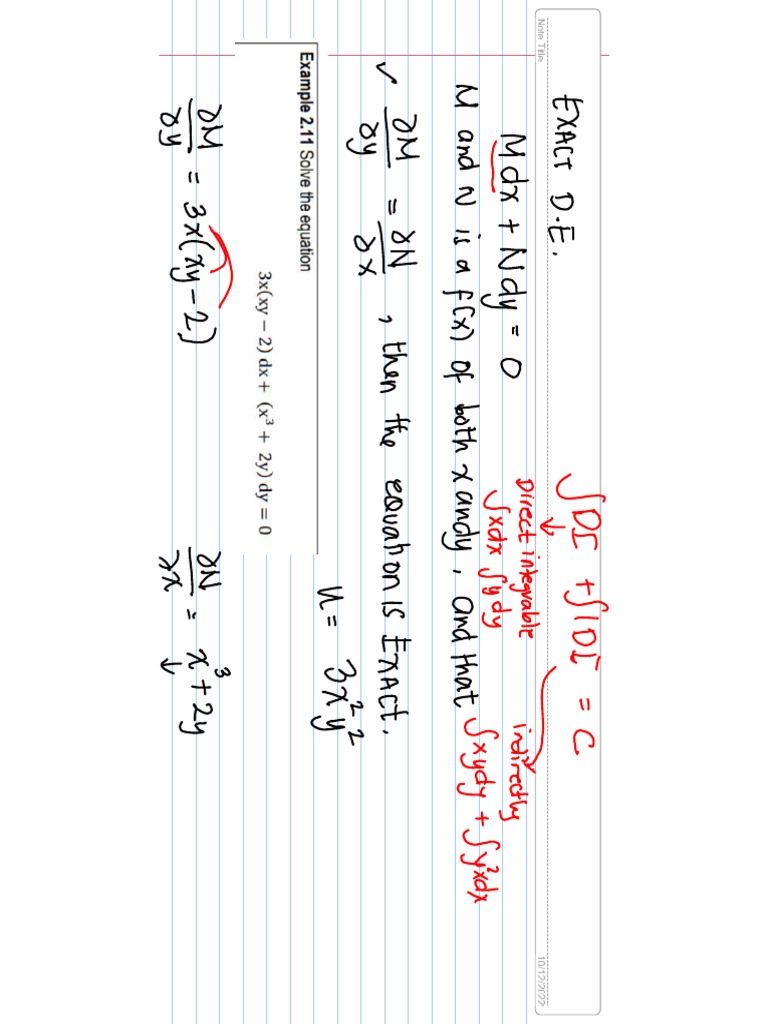 Note Title
10/12/2022
EXACT D.E.
∫DI + ∫IDI = C
Mdx + Ndy = 0
Direct integrable
indirectly
∫xdx ∫ydy
∫xydy + ∫y²xdx
M and N is a f(x) of both x and y, and that
✓ ∂M/∂y = ∂N/∂x , then the equation is EXACT.
u = 3x²y²
Example 2.11 Solve the equation
3x(xy − 2) dx + (x³ + 2y) dy = 0
∂M/∂y = 3x(xy − 2)
∂N/∂x = x³ + 2y